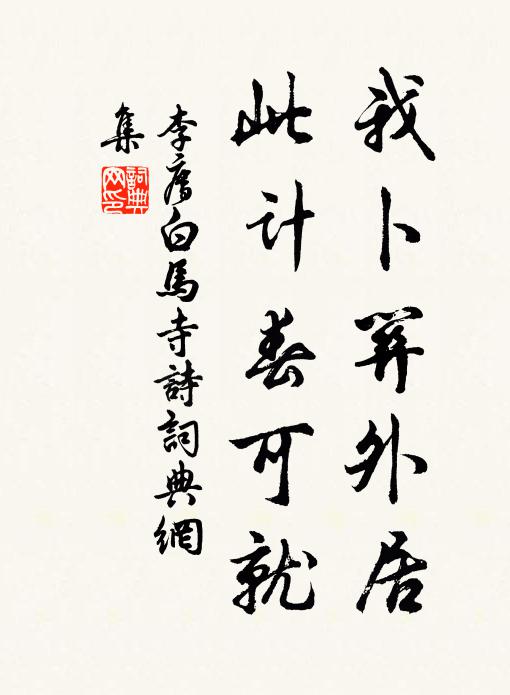 我卜羿外居
此计春可就
李廌白馬寺詩詞典網
集
詞典
网印